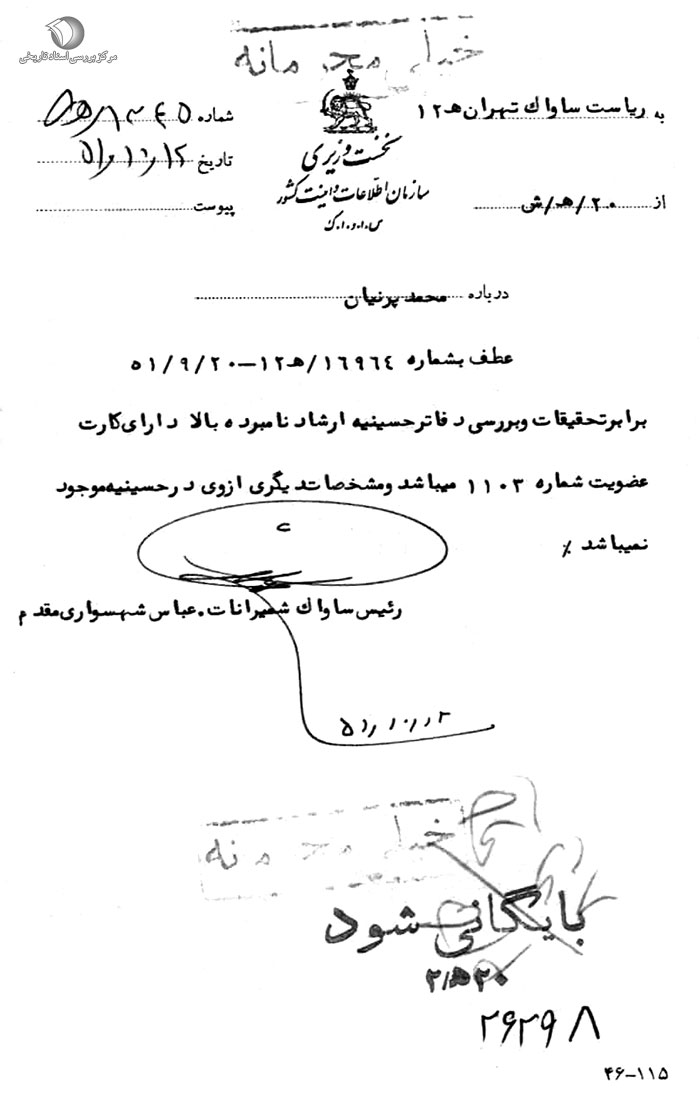 مرکز بررسی اسناد تاریخی
خیلی محرمانه
به ریاست ساواک تهران هـ ۱۲
شماره
نخست وزیری
تاریخ ۵۱/۱۰/۱۲
سازمان اطلاعات و امنیت کشور
س.ا.و.ا.ک
از ۲۰/هـ/ش
پیوست
درباره محمد پرنیان
عطف بشماره ۱۶۹۶۴/هـ۱۲–۵۱/۹/۲۰
برابر تحقیقات و بررسی دفاتر حسینیه ارشاد نامبرده بالا دارای کارت
عضویت شماره ۱۱۰۳ میباشد و مشخصات دیگری از وی در حسینیه موجود
نمیباشد ٪
رئیس ساواک شمیرانات. عباس شهسواری مقدم
خیلی محرمانه
بایگانی شود
۲۶۲۹۸
۴۶–۱۱۵